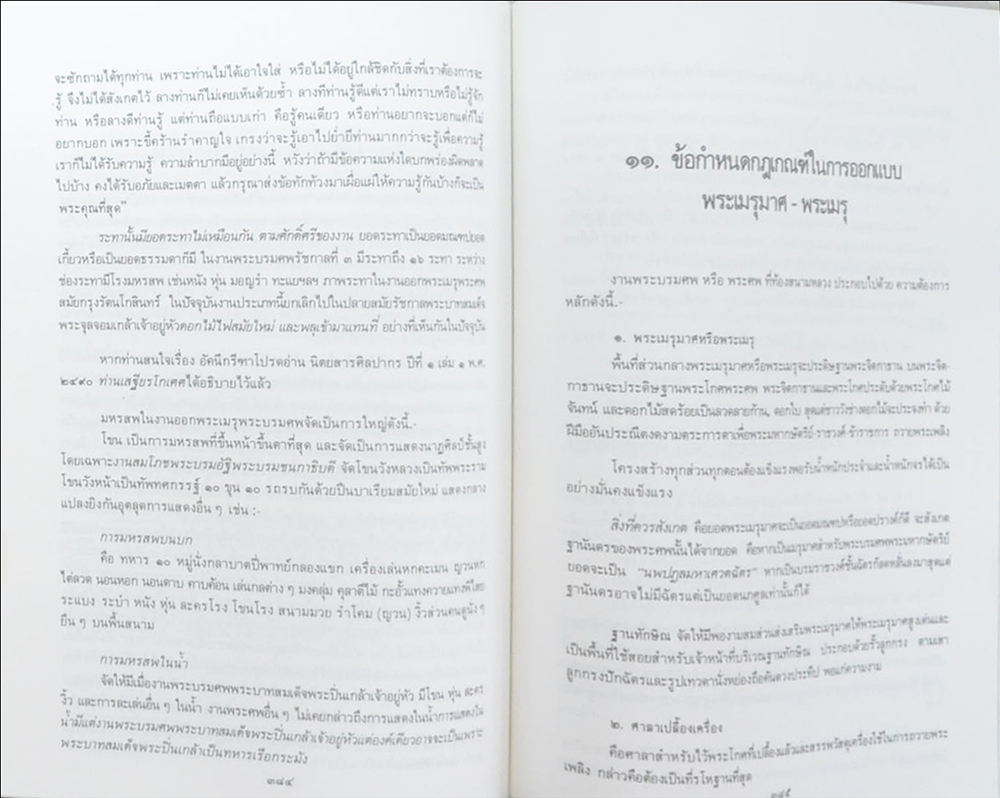 จะซักถามได้ทุกท่าน เพราะท่านไม่ได้เอาใจใส่ หรือไม่ได้อยู่ใกล้ชิดกับสิ่งที่เราต้องการจะ
รู้ จึงไม่ได้สังเกตไว้ ลางท่านก็ไม่เคยเห็นด้วยซ้ำ ลางทีท่านรู้ดีแต่เราไม่ทราบหรือไม่รู้จัก
ท่าน หรือลางทีท่านรู้ แต่ท่านถือแบบเก่า คือรู้คนเดียว หรือท่านอยากจะบอกแต่ก็ไม่
อยากบอก เพราะขี้คร้านรำคาญใจ เกรงว่าจะรู้เอาไปย่ำยีท่านมากกว่าจะรู้เพื่อความรู้
เราก็ไม่ได้รับความรู้ ความลำบากมีอยู่อย่างนี้ หวังว่าถ้ามีข้อความแห่งใดบกพร่องผิดพลาด
ไปบ้าง คงได้รับอภัยและเมตตา แล้วกรุณาส่งข้อทักท้วงมาเผื่อแผ่ให้ความรู้กันบ้างก็จะเป็น
พระคุณที่สุด"
ระทานั้นมียอดระทาไม่เหมือนกัน ตามศักดิ์ศรีของงาน ยอดระทาเป็นยอดมณฑปยอด
เกี้ยวหรือเป็นยอดธรรมดาก็มี ในงานพระบรมศพรัชกาลที่ ๓ มีระทาถึง ๑๖ ระทา ระหว่าง
ช่องระทามีโรงมหรสพ เช่นหนัง หุ่น มอญรำ ทะแยฯลฯ ภาพระทาในงานออกพระเมรุพระศพ
สมัยกรุงรัตนโกสินทร์ ในปัจจุบันงานประเภทนี้ยกเลิกไปในปลายสมัยรัชกาลพระบาทสมเด็จ
พระจุลจอมเกล้าเจ้าอยู่หัวดอกไม้ไฟสมัยใหม่ และพลุเข้ามาแทนที่ อย่างที่เห็นกันในปัจจุบัน
หากท่านสนใจเรื่อง อัคนีกรีฑาโปรดอ่าน นิตยสารศิลปากร ปีที่ ๑ เล่ม ๑ พ.ศ.
๒๔๙๐ ท่านเสฐียรโกเศศได้อธิบายไว้แล้ว
มหรสพในงานออกพระเมรุพระบรมศพจัดเป็นการใหญ่ดังนี้.-
โขน เป็นการมหรสพที่ขึ้นหน้าขึ้นตาที่สุด และจัดเป็นการแสดงนาฏศิลป์ชั้นสูง
โดยเฉพาะงานสมโภชพระบรมอัฐิพระบรมชนกาธิบดี จัดโขนวังหลวงเป็นทัพพระราม
โขนวังหน้าเป็นทัพทศกรรฐ์ ๑๐ ขุน ๑๐ รถรบกันด้วยปืนบาเรียมสมัยใหม่ แสดงกลาง
แปลงยิงกันอุตลุดการแสดงอื่น ๆ เช่น :-
การมหรสพบนบก
คือ ทหาร ๑๐ หมู่นั่งกลาบาตปี่พาทย์กลองแขก เครื่องเล่นหกคะเมน ญวนหก
ไต่ลวด นอนหอก นอนดาบ คาบค้อน เล่นกลต่าง ๆ มงคลุ่ม คุลาตีไม้ กะอั้วแทงควายแทงวิไสย
ระแบง ระบำ หนัง หุ่น ละครโรง โขนโรง สนามมวย รำโคม (ญวน) งิ้วส่วนคนดูนั่ง ๆ
ยืน ๆ บนพื้นสนาม
การมหรสพในน้ำ
จัดให้มีเมื่องานพระบรมศพพระบาทสมเด็จพระปิ่นเกล้าเจ้าอยู่หัว มีโขน หุ่น ละคร
งิ้ว และการละเล่นอื่น ๆ ในน้ำ งานพระศพอื่น ๆ ไม่เคยกล่าวถึงการแสดงในน้ำการแสดงใน
น้ำมีแต่งานพระบรมศพพระบาทสมเด็จพระปิ่นเกล้าเจ้าอยู่หัวแต่องค์เดียวอาจจะเป็นเพราะ
พระบาทสมเด็จพระปิ่นเกล้าเป็นทหารเรือกระมัง
๓๘๔
๑๑. ข้อกำหนดกฎเกณฑ์ในการออกแบบ
พระเมรุมาศ - พระเมรุ
งานพระบรมศพ หรือ พระศพ ที่ท้องสนามหลวง ประกอบไปด้วย ความต้องการ
หลักดังนี้.-
๑. พระเมรุมาศหรือพระเมรุ
พื้นที่ส่วนกลางพระเมรุมาศหรือพระเมรุจะประดิษฐานพระจิตกาธาน บนพระจิต-
กาธานจะประดิษฐานพระโกศพระศพ พระจิตกาธานและพระโกศประดับด้วยพระโกศไม้
จันทน์ และดอกไม้สดร้อยเป็นลวดลายก้าน, ดอกใบ สุดแต่ชาววังช่างดอกไม้จะประจงทำ ด้วย
ฝีมืออันประณีตงดงามตระการตาเพื่อพระมหากษัตริย์-ราชวงศ์-ข้าราชการ ถวายพระเพลิง
โครงสร้างทุกส่วนทุกตอนต้องแข็งแรงพอรับน้ำหนักประจำและน้ำหนักจรได้เป็น
อย่างมั่นคงแข็งแรง
สิ่งที่ควรสังเกต คือยอดพระเมรุมาศจะเป็นยอดมณฑปหรือยอดปรางค์ก็ดี จะสังเกต
ฐานันดรของพระศพนั้นได้จากยอด คือหากเป็นเมรุมาศสำหรับพระบรมศพพระมหากษัตริย์
ยอดจะเป็น "นพปฎลมหาเศวตฉัตร" หากเป็นบรมราชวงศ์ชั้นฉัตรก็ลดหลั่นลงมาสุดแต่
ฐานันดรอาจไม่มีฉัตรแต่เป็นยอดนภศูลเท่านั้นก็ได้
ฐานทักษิณ จัดให้มีพองามสมส่วนส่งเสริมพระเมรุมาศให้พระเมรุมาศสูงเด่นและ
เป็นพื้นที่ใช้สอยสำหรับเจ้าหน้าที่บริเวณฐานทักษิณ ประกอบด้วยรั้วลูกกรง ตามเสา
ลูกกรงปักฉัตรและรูปเทวดานั่งหย่องถือคันดวงประทีป พอแก่ความงาม
๒. ศาลาเปลื้องเครื่อง
คือศาลาสำหรับไว้พระโกศที่เปลื้องแล้วและสรรพวัสดุเครื่องใช้ในการถวายพระ
เพลิง กล่าวคือต้องเป็นที่รโหฐานที่สุด
๓๘๕